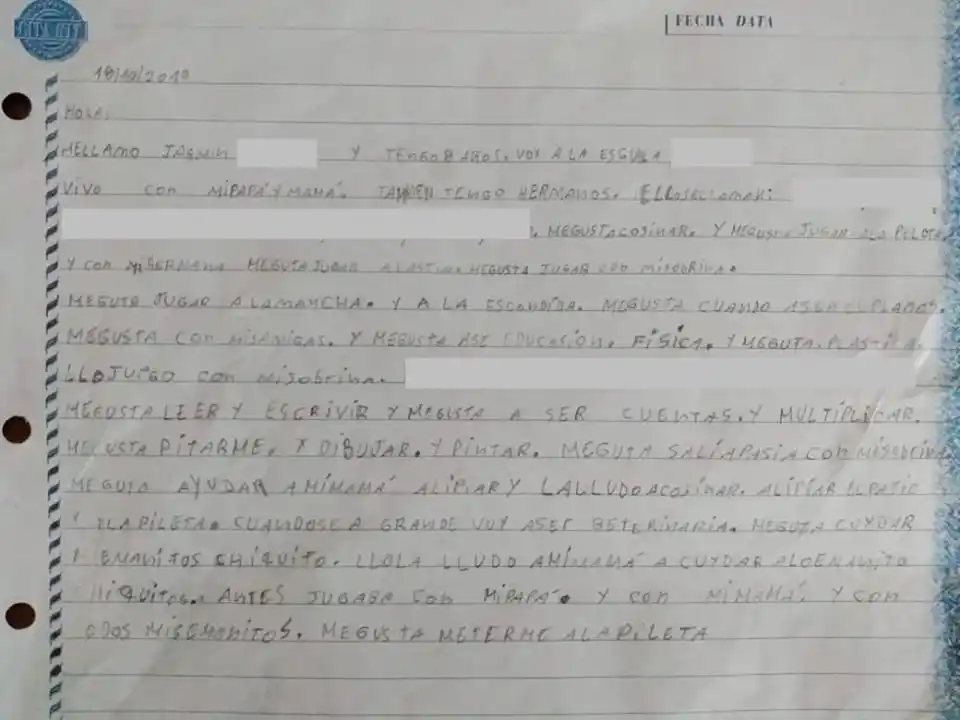 CITY
FECHA DATA
HOLA:
MELLAMO JAQUIN Y TENGO 8 AÑOS. VOY A LA ESCULA
VIVO con MIPAPÁ Y MAMÁ. TAMVIEN TENGO HERMANOS. ELLOSELLAMAN:
. MEGUSTACOSINAR. Y MEGUSTA JUGAR ALA PELOTA.
Y con MEGUTAJUGAR MEGUSTA JUGAR con misobrina.
MEGUTO JUGAR A LAMANCHA. Y A LA ESCONDIDA. MEGUSTA CUANDO
MEGUSTA con MISAMIGAS. Y MEGUSTA ASE EDUCASION. FÍSICA. Y MEGUTA.
LLOJUEGO con Misobrina.
MEGUSTA LEER Y ESCRIVIR Y MEGUSTA A SER CUENTAS. Y MULTIPLICAR.
MEGUSTA PITARME. Y DIBUJAR. Y PINTAR. MEGUTA SALÍAPASIA con MISOBRINA
MEGUTA AYUDAR AMÍMAMÁ ALIPIAR Y LALLUDOACOSINAR. ALIPIAR ELPATIO
Y ELAPILETA. CUANDOSEA GRANDE VOY ASER BETERINARIA. MEGUTA CUYDAR
EMANITOS CHÍQUITO. LLOLA LLUDO AMÍMAMÁ A CUYDAR ALOEMANITO
HÍQUITOS. ANTES JUGABA con MIPAPÁ. Y con MIMAMÁ. Y con
ODOS MISEMONITOS. MEGUSTA METERME ALAPILETA